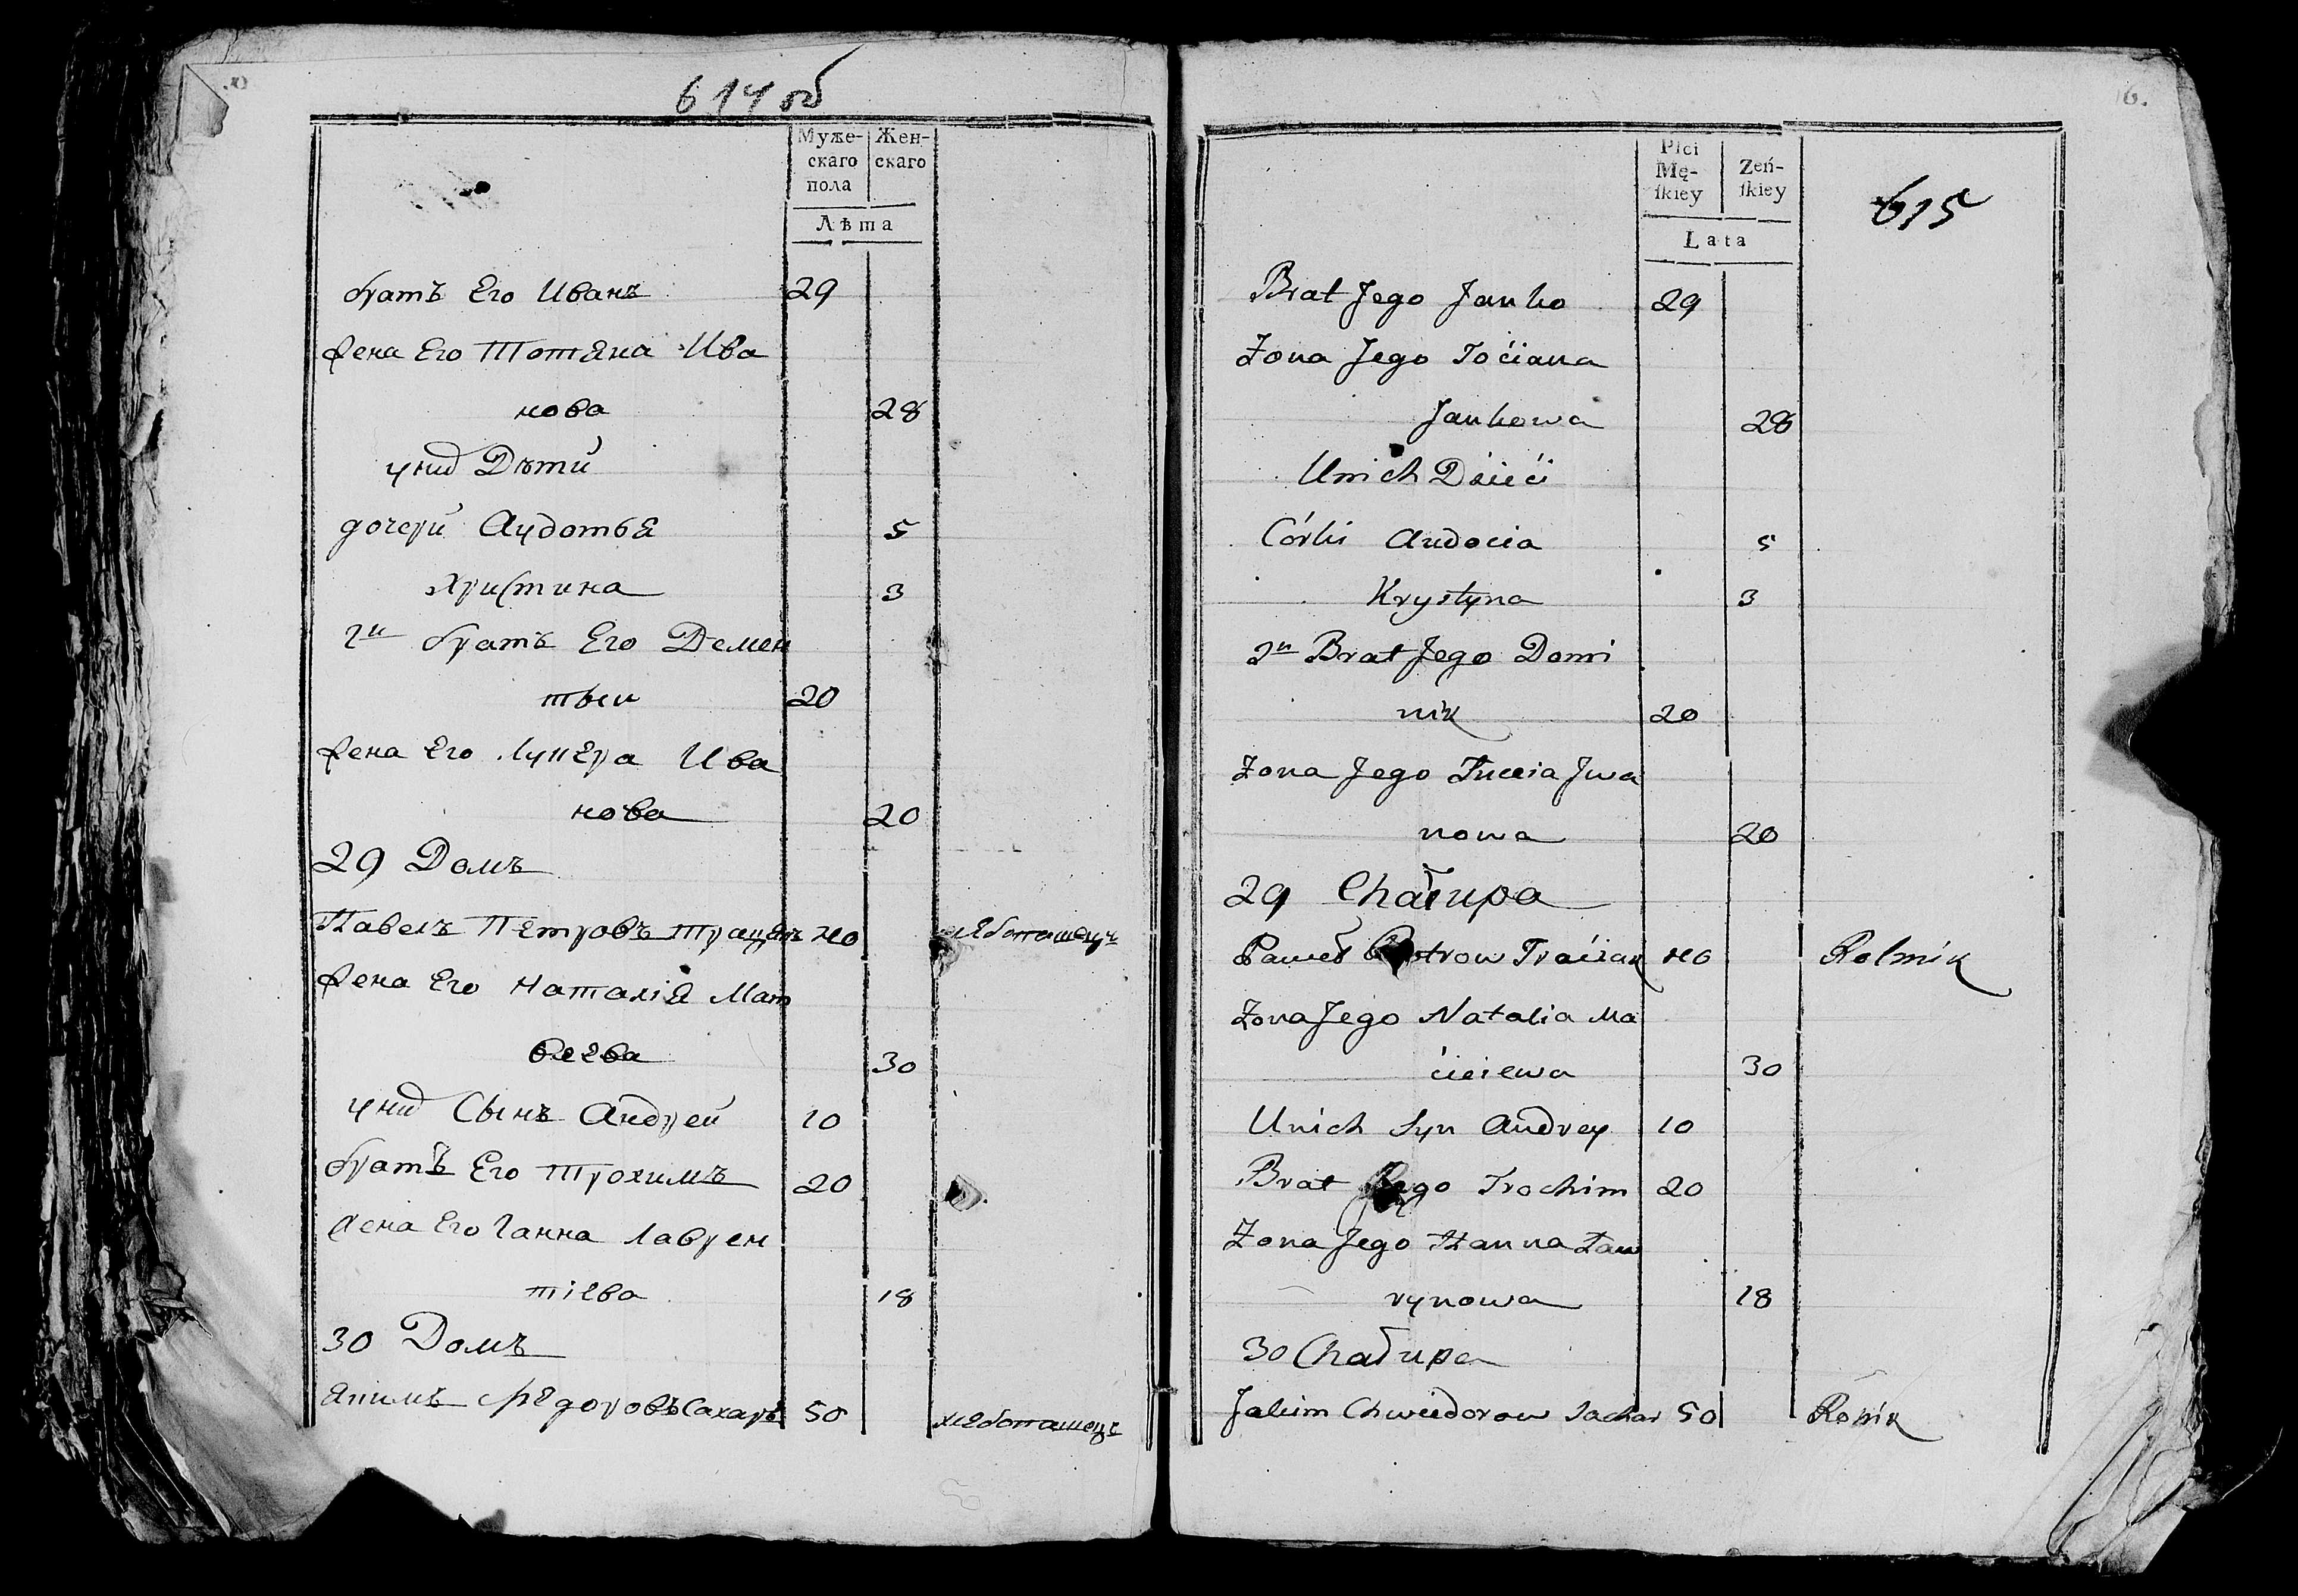 614 об
Муже-
скаго
пола
Жен-
скаго
Лѣта
братъ Его Иванъ 29
жена Его Тотяна Ива
нова 28
у нид Дѣти
дочери Аудотья 5
Христина 3
2й братъ Его Демен
тьи 20
жена Его Лукеря Ива
нова 20
29 Домъ
Павелъ Петровъ 40
жена Его Наталія Мат
веева 30
у нид Сынъ Андреи 10
братъ Его Трохимъ 20
жена Его Ганна Лаврен
тіева 18
30 Домъ
Якимъ Федоровъ Сахаръ 50 хлебопашецъ
16.
615
Płci
Mę-
ſkiey
Zeń-
ſkiey
Lata
Brat Jego Janko 29
Zona Jego Tociana
Jankowa 28
Unich Dzieci
Córki Audocia 5
Krystyna 3
2й Brat Jego Domi
nik 20
Zona Jego Jwa
nowa 20
29 Chałupa
Paweł Piotrow 40 Rolnik
Zona Jego Natalia Ma
cieiewa 30
Unich Syn Andrey 10
Brat Jego Trochim 20
Zona Jego Hanna Ław
rynowa 18
30 Chałupa
Jakim Chwiedorow Sachar 50 Rolnik